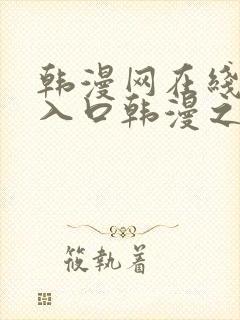 韩漫网在线
入口韩漫之
筱执着